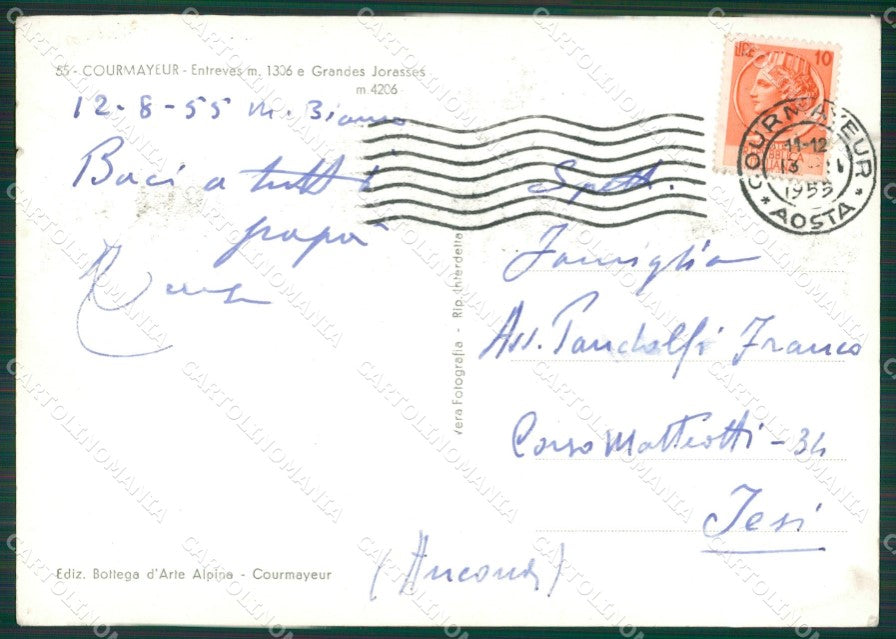 55 - COURMAYEUR - Entreves m. 1306 e Grandes Jorasses
m. 4206
12-8-55 M. Bianco
Baci a tutti
papà
Spett.
Famiglia
Avv. Pandolfi Franco
Corso Matteotti - 34
Jesi
(Ancona)
Vera Fotografia - Rip. Interdetta
Ediz. Bottega d'Arte Alpina - Courmayeur
LIRE 10
COURMAYEUR
11-12
13
1955
* AOSTA *
CARTOLINOMANIA